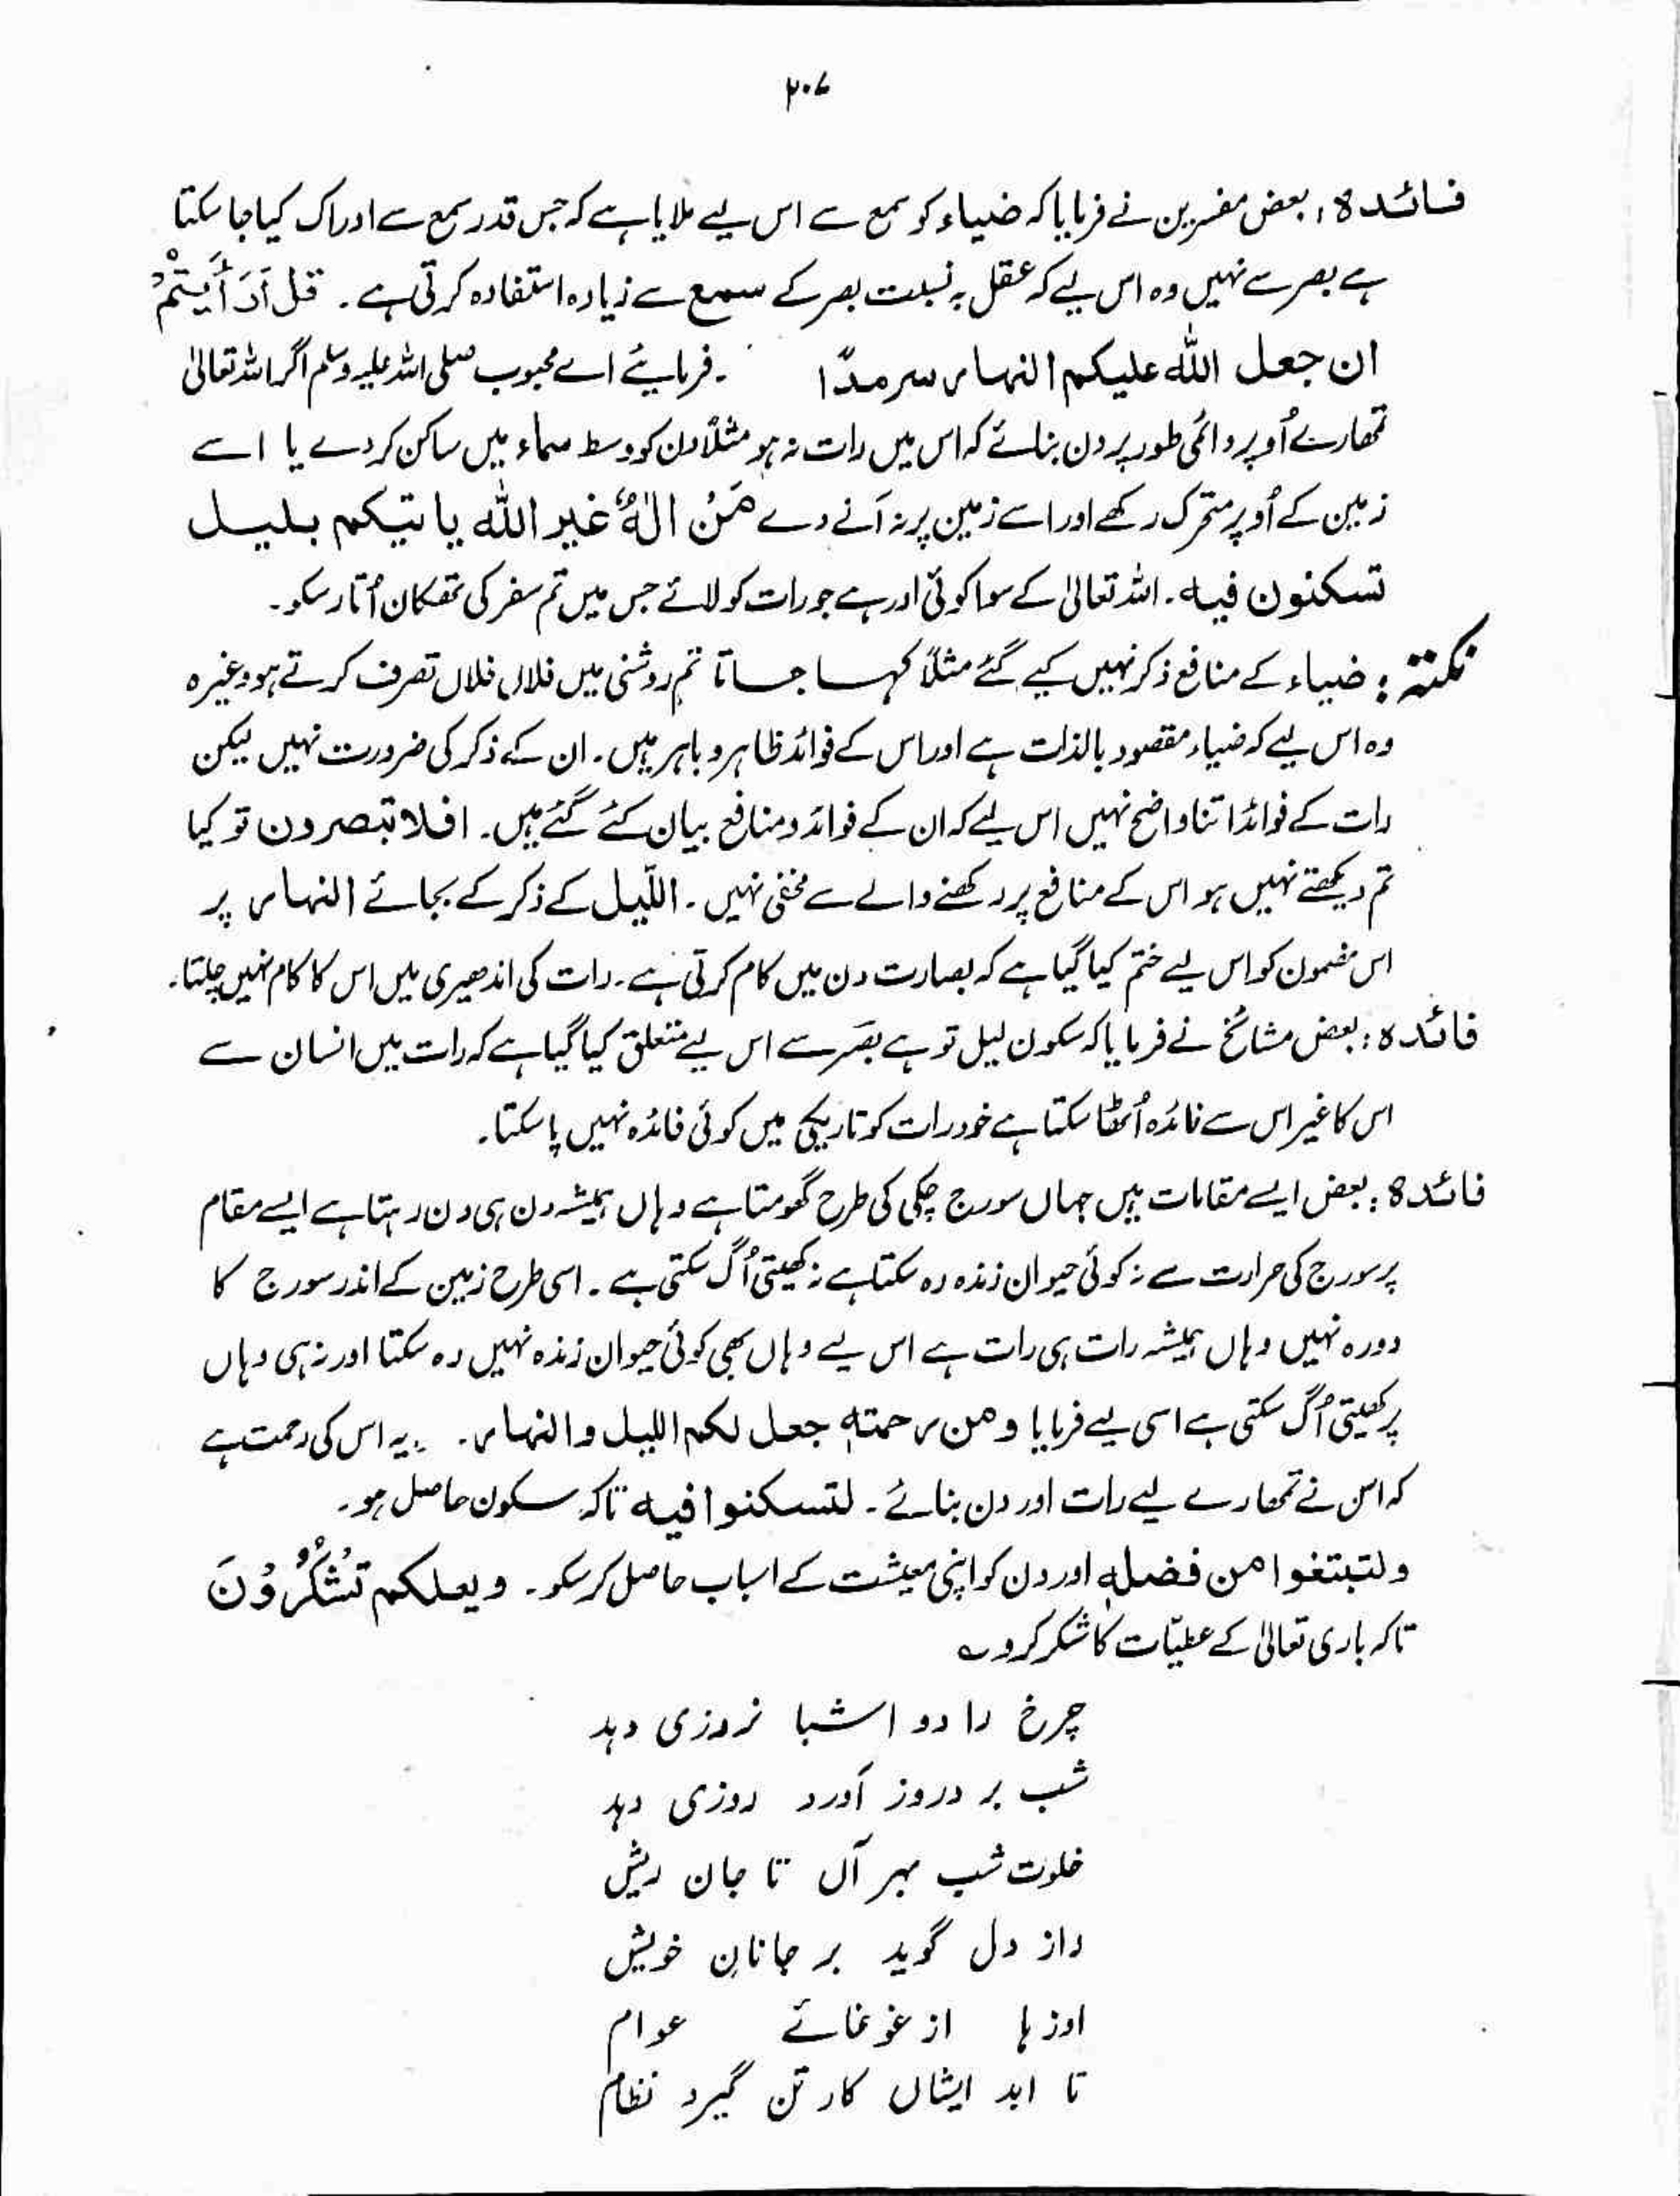 ۲۰۷
فائدہ: بعض مفسرین نے فرمایا کہ ضیاء کو سمع سے اس لیے ملایا ہے کہ جس قدر سمع سے ادراک کیا جا سکتا
ہے بصر سے نہیں وہ اس لیے کہ عقل بہ نسبت بصر کے سمع سے زیادہ استفادہ کرتی ہے۔ قل اَرَأَیْتُمْ
ان جعل اللّٰه علیکم النہار سرمدًا ۔ فرمایئے اے محبوب صلی اللہ علیہ وسلم اگر اللہ تعالیٰ
تمھارے اُوپر دائمی طور پر دن بنائے کہ اس میں رات نہ ہو مثلاً دن کو وسط سماء میں ساکن کر دے یا اسے
زمین کے اُوپر متحرک رکھے اور اسے زمین پر نہ آنے دے مَنْ اِلٰہٌ غیر اللّٰه یاتیکم بلیل
تسکنون فیہ۔ اللہ تعالیٰ کے سوا کوئی اور ہے جو رات کو لائے جس میں تم سفر کی تھکان اُتار سکو۔
نکتہ: ضیاء کے منافع ذکر نہیں کیے گئے مثلاً کہا جاتا تم روشنی میں فلاں فلاں تصرف کرتے ہو وغیرہ
وہ اس لیے کہ ضیاء مقصود بالذات ہے اور اس کے فوائد ظاہر و باہر ہیں۔ ان کے ذکر کی ضرورت نہیں لیکن
رات کے فوائد اتنا واضح نہیں اس لیے کہ ان کے فوائد و منافع بیان کئے گئے ہیں۔ افلا تبصرون تو کیا
تم دیکھتے نہیں ہو اس کے منافع پر دکھنے والے سے مخفی نہیں۔ اللّیل کے ذکر کے بجائے النہار پر
اس مضمون کو اس لیے ختم کیا گیا ہے کہ بصارت دن میں کام کرتی ہے۔ رات کی اندھیری میں اس کا کام نہیں چلتا۔
فائدہ: بعض مشائخ نے فرمایا کہ سکون لیل تو ہے بصَر سے اس لیے متعلق کیا گیا ہے کہ رات میں انسان سے
اس کا غیر اس سے فائدہ اُٹھا سکتا ہے خود رات کو تاریکی میں کوئی فائدہ نہیں پا سکتا۔
فائدہ: بعض ایسے مقامات ہیں جہاں سورج چکی کی طرح گھومتا ہے وہاں ہمیشہ دن ہی دن رہتا ہے ایسے مقام
پر سورج کی حرارت سے نہ کوئی حیوان زندہ رہ سکتا ہے نہ کھیتی اُگ سکتی ہے۔ اسی طرح زمین کے اندر سورج کا
دورہ نہیں وہاں ہمیشہ رات ہی رات ہے اس لیے وہاں بھی کوئی حیوان زندہ نہیں رہ سکتا اور نہ ہی وہاں
پر کھیتی اُگ سکتی ہے اسی لیے فرمایا ومن رحمتہٖ جعل لکم اللیل والنہار۔ یہ اس کی رحمت ہے
کہ اس نے تمھارے لیے رات اور دن بنائے۔ لتسکنوا فیہ تاکہ سکون حاصل ہو۔
ولتبتغوا من فضلہٖ اور دن کو اپنی معیشت کے اسباب حاصل کر سکو۔ ویعلکم تَشْکُرُوْنَ
تاکہ باری تعالیٰ کے عطیّات کا شکر کرو ؎
چرخ را دو اشبا نروزی دہد
شب بر دروز آورد روزی دہد
خلوت شب بہر آں تا جان ریش
راز دل گوید بر جانانِ خویش
اوزہا از غوغائے عوام
تا ابد ایشاں کار تن گیرد نظام